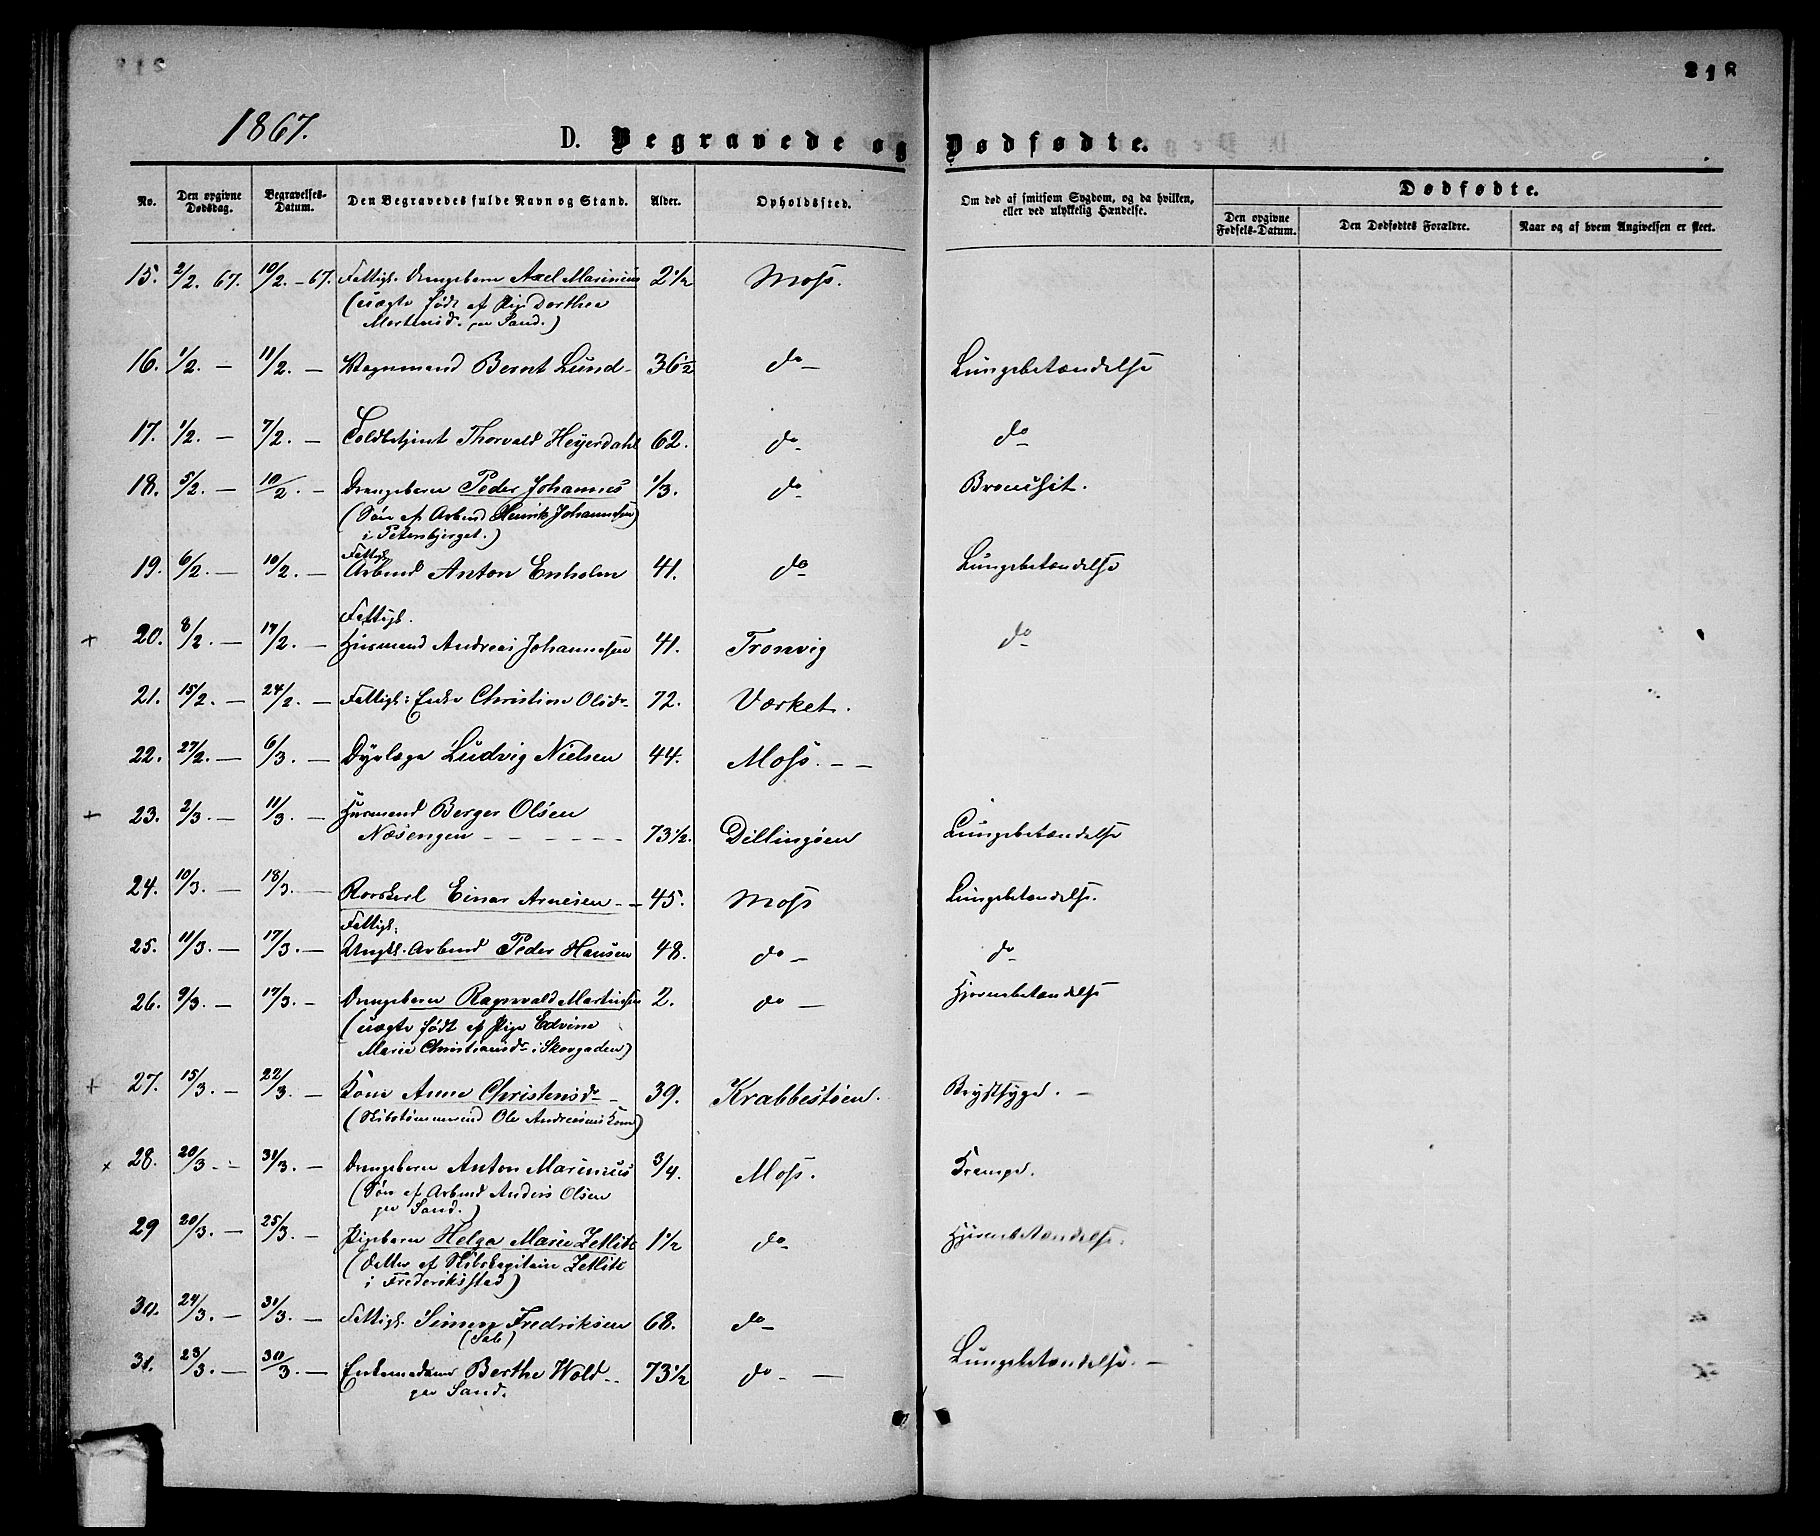 218
1867.
D. Begravede og Dødfødte.
No.
Den opgivne Dødsdag.
Begravelses-Datum.
Den Begravedes fulde Navn og Stand.
Alder.
Opholdssted.
Om død af smitsom Sygdom, og da hvilken, eller ved ulykkelig Hændelse.
Dødfødte.
Den opgivne Fødsels-Datum.
Den Dødfødtes Forældre.
Naar og af hvem Angivelsen er skeet.
15. 2/2. 67. 10/2. - 67. Fattigl. Drengebarn Axel Marinius 2 1/2 Moss.
(uægte født af Pige Dorthea
Mortensd. paa Sand.)
16. 1/2. — 11/2. — Vognmand Bernt Lund - 36 1/2 do — Lungebetændelse
17. 1/2. — 7/2. — Toldbetjent Thorvald Heyerdahl 62. do do
18. 5/2. — 10/2. — Drengebarn Peder Johannes 1/3. do Bronchit.
(Søn af Arbmd Henrik Johannesen
i Petersbjerget.)
Fattigl.
19. 6/2. — 10/2. — Arbmd Anton Enholm 41. do Lungebetændelse
Fattigl.
+ 20. 8/2. — 17/2. — Husmand Andreas Johannesen 41. Tronvig do
21. 15/2. — 24/2. — Fattigl: Enke Christine Olsdr 72. Værket.
22. 27/2. — 6/3. — Dyrlæge Ludvig Nielsen 44. Moss. - -
+ 23. 2/3. — 11/3. — Husmand Berger Olsen
Næsengen - - - - - - 73 1/2. Dillingøen Lungebetændelse
24. 10/3. — 18/3. — Rorskarl Einar Arnesen - - 45. Moss Lungebetændelse.
Fattigl:
25. 11/3. — 17/3. — Ungkl. Arbmd Peder Hansen 48. do - do
26. 9/3. — 17/3. — Drengebarn Ragnvald Martinsen 2. do — Hjernebetændelse
(uægte født af Pige Edvine
Marie Christiansdr i Skovgaden)
+ 27. 15/3. — 22/3. — Kone Anne Christensdr - 39. Krabbestøen. Brystsyge. -
(Skibstømmermand Ole Andreasens Kone)
x 28. 20/3. - 31/3. — Drengebarn Anton Marinius 3/4. Moss. Krampe.
(Søn af Arbmd Anders Olsen
paa Sand.)
29 20/3. — 25/3. — Pigebarn Helga Marie Zetlitz 1 1/2 do Hjernebetændelse.
(Datter af Skibskapitain Zetlitz
i Frederiksstad)
30. 24/3. — 31/3. — Fattigl. Simen Fredriksen 68. do
31. 23/3. — 30/3. — Enkemadame Berthe Wold - 73 1/2 do - — Lungebetændelse. —
paa Sand.